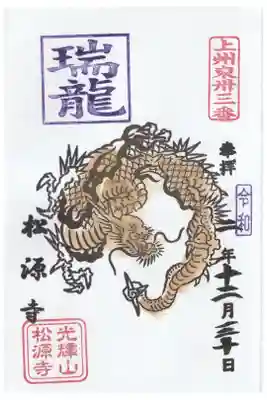 上州 卅三番
奉拝 令和 年 十二月三十日
瑞龍
松源寺
光輝山
松源寺